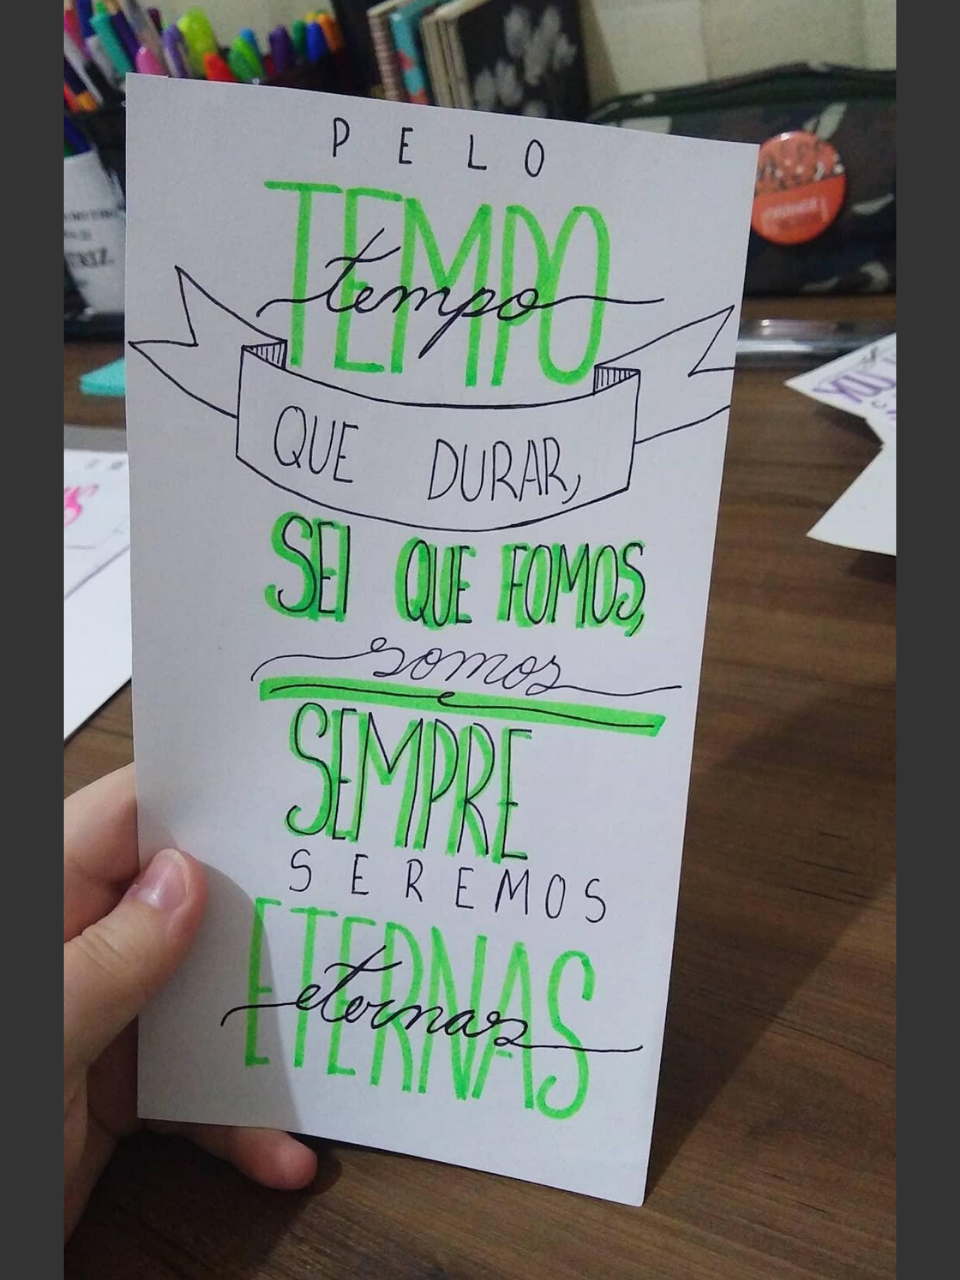 PELO
TEMPO
tempo
QUE DURAR,
SEI QUE FOMOS,
somos
SEMPRE
SEREMOS
ETERNAS
eternas